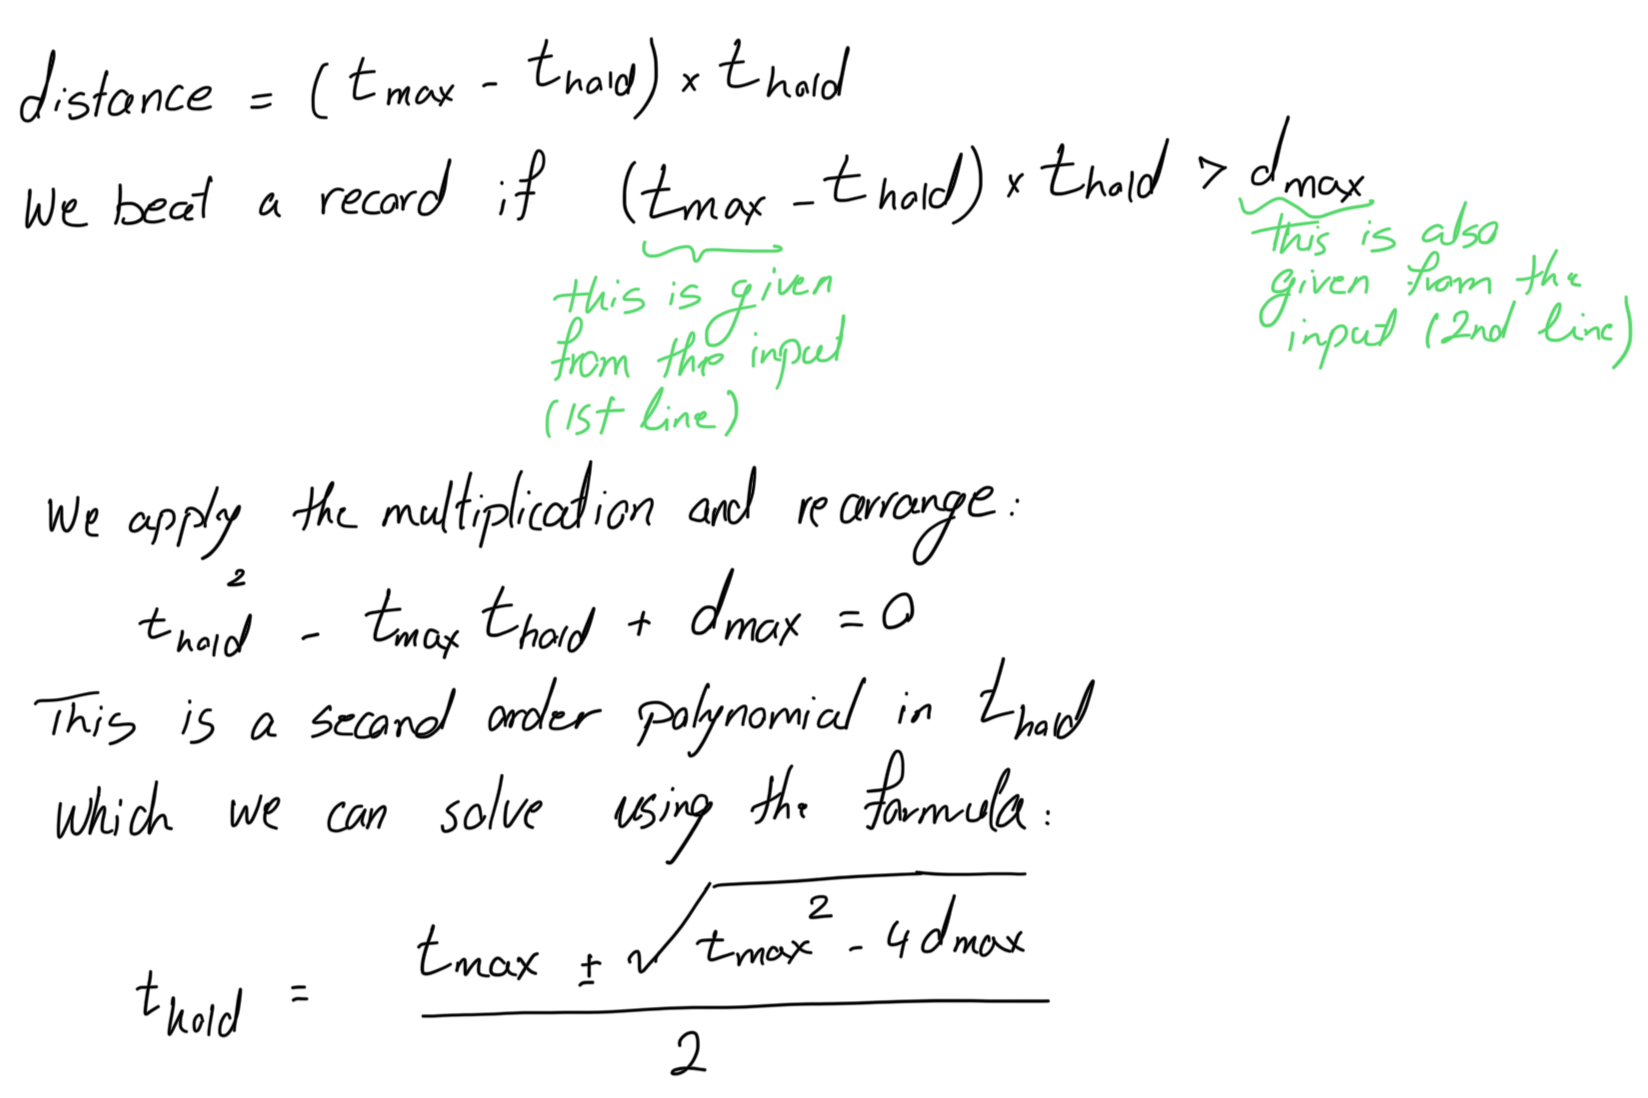 distance = (t_max - t_hold) × t_hold
We beat a record if (t_max - t_hold) × t_hold > d_max
this is given
from the input
(1st line)
this is also
given from the
input (2nd line)
We apply the multiplication and rearrange:
t_hold² - t_max t_hold + d_max = 0
This is a second order polynomial in t_hold
which we can solve using the formula:
t_hold = (t_max ± √(t_max² - 4d_max)) / 2